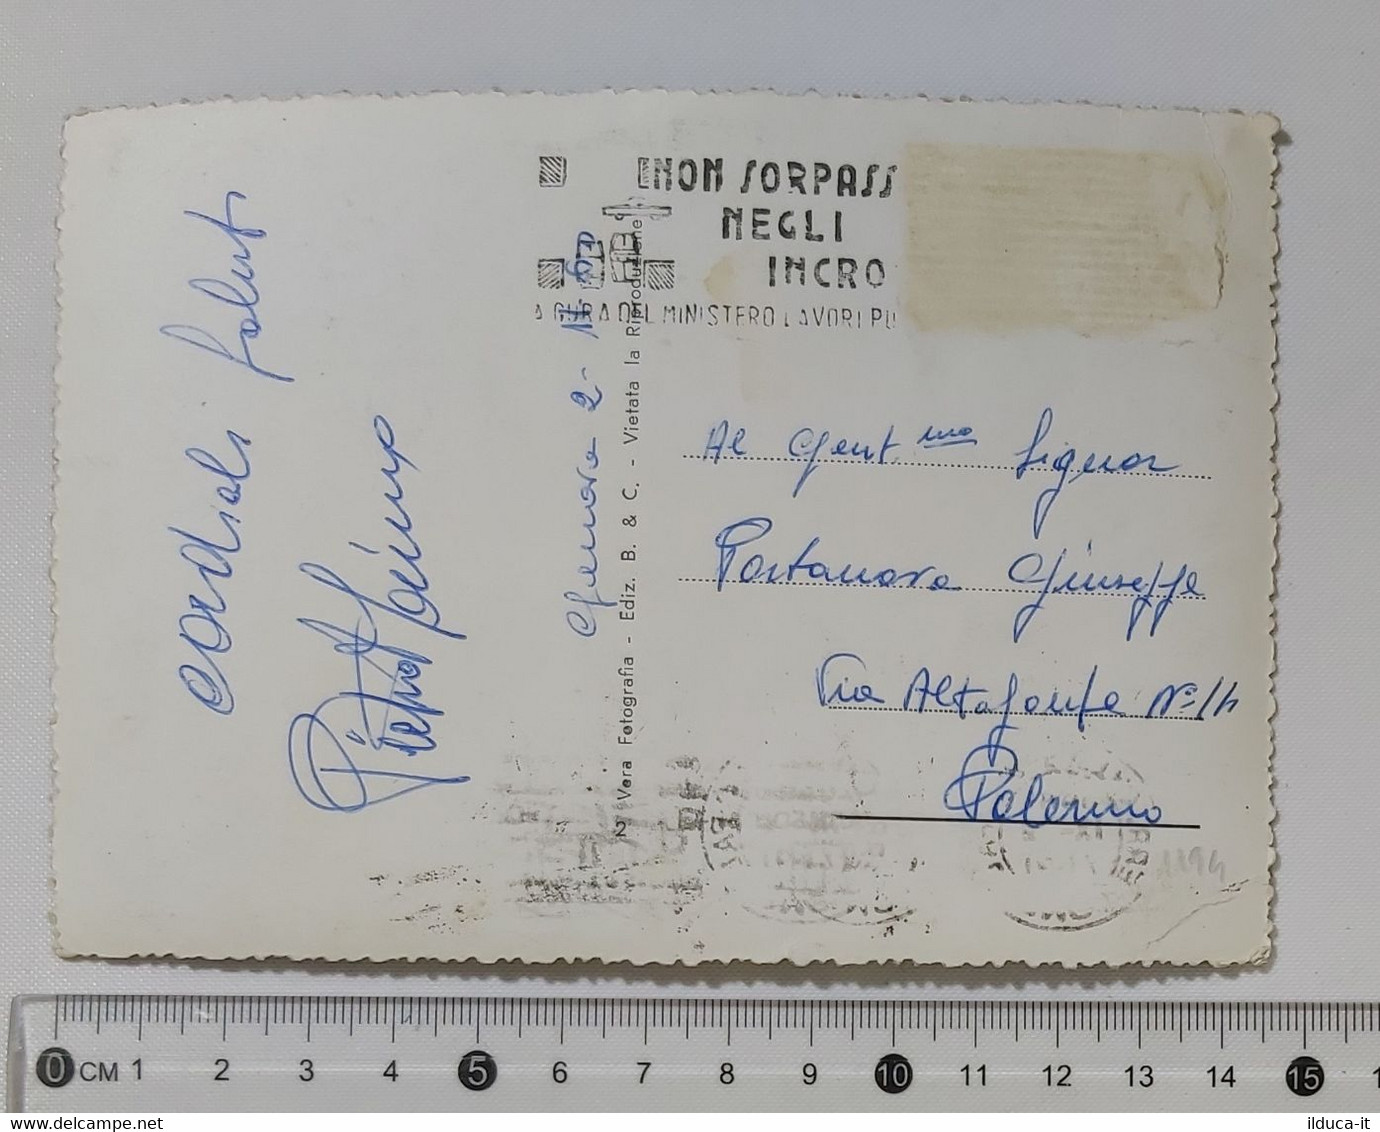 cordiali saluti
Genova 2-
2 Vera Fotografia - Ediz. B. & C. - Vietata la Riproduzione
NON SORPASS
NEGLI
INCRO
A CURA DEL MINISTERO LAVORI PU
Al Gent.mo Signor
Portanova Giuseppe
Via Altofonte N=
Palermo
1194
0 CM 1 2 3 4 5 6 7 8 9 10 11 12 13 14 15
ilduca-it